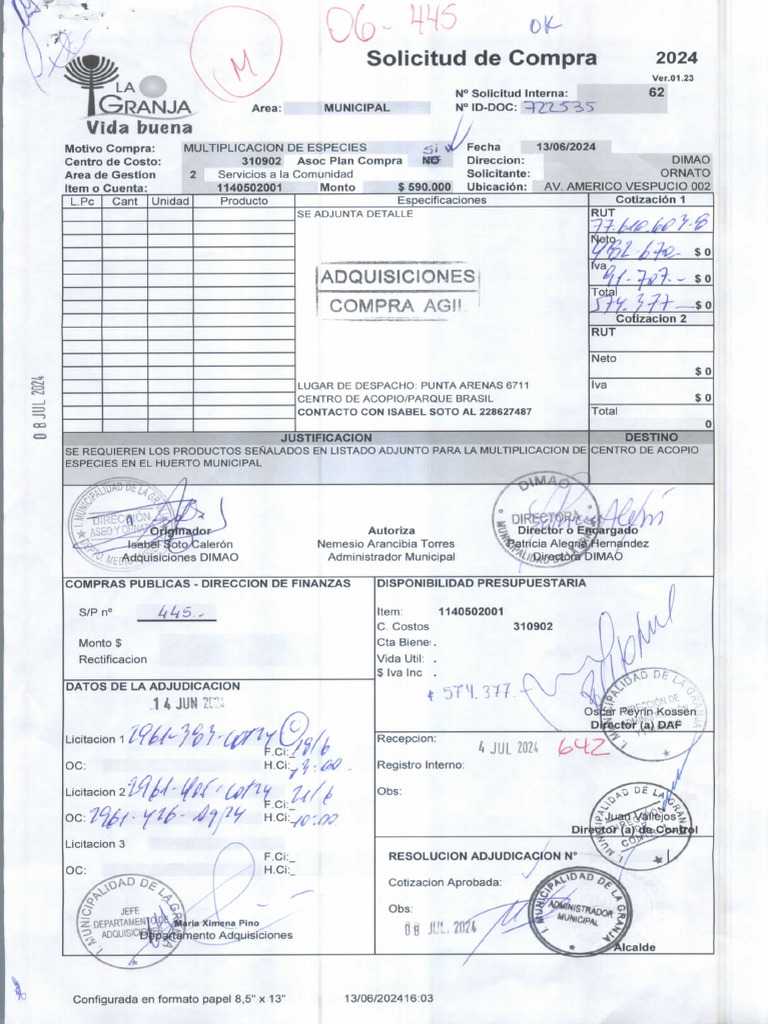 06-445 OK
M
LA GRANJA
Vida buena
Solicitud de Compra 2024
Ver.01.23
Nº Solicitud Interna: 62
Area: MUNICIPAL Nº ID-DOC: 722535
Motivo Compra: MULTIPLICACION DE ESPECIES Si Fecha 13/06/2024
Centro de Costo: 310902 Asoc Plan Compra NO Direccion: DIMAO
Area de Gestion 2 Servicios a la Comunidad Solicitante: ORNATO
Item o Cuenta: 1140502001 Monto $ 590.000 Ubicación: AV. AMERICO VESPUCIO 002
L.Pc Cant Unidad Producto Especificaciones Cotización 1
SE ADJUNTA DETALLE RUT
77.610.603-8
Neto 482.670.- $ 0
Iva 91.707.- $ 0
Total 574.377 $ 0
ADQUISICIONES
COMPRA AGIL
Cotizacion 2
RUT
Neto
$ 0
Iva
$ 0
Total
0
LUGAR DE DESPACHO: PUNTA ARENAS 6711
CENTRO DE ACOPIO/PARQUE BRASIL
CONTACTO CON ISABEL SOTO AL 228627487
08 JUL 2024
JUSTIFICACION DESTINO
SE REQUIEREN LOS PRODUCTOS SEÑALADOS EN LISTADO ADJUNTO PARA LA MULTIPLICACION DE CENTRO DE ACOPIO
ESPECIES EN EL HUERTO MUNICIPAL
I. MUNICIPALIDAD DE LA GRANJA
DIRECCIÓN
ASEO Y ORNATO
DIMAO
DIRECTORA
Originador Autoriza Director o Encargado
Isabel Soto Calerón Nemesio Arancibia Torres Patricia Alegria Hernandez
Adquisiciones DIMAO Administrador Municipal Directora DIMAO
COMPRAS PUBLICAS - DIRECCION DE FINANZAS
S/P nº 445.-
Monto $
Rectificacion
DISPONIBILIDAD PRESUPUESTARIA
Item: 1140502001
C. Costos 310902
Cta Biene: .
Vida Util: .
$ Iva Inc .
$ 574.377.-
I. MUNICIPALIDAD DE LA GRANJA
Oscar Peyrin Kossen
Director (a) DAF
DATOS DE LA ADJUDICACION
14 JUN 2024
Licitacion 1 2961-383-cot24 C
F.Ci: 19/6
OC: H.Ci: 13:00
Licitacion 2 2961-405-cot24
F.Ci: 21/6
OC: 2961-426-ag24 H.Ci: 10:00
Licitacion 3
F.Ci:_
OC: H.Ci:_
Recepcion: 4 JUL 2024 642
Registro Interno:
Obs:
I. MUNICIPALIDAD DE LA GRANJA
DIRECCION DE CONTROL
Juan Vallejos
Director (a) de Control
RESOLUCION ADJUDICACION Nº
Cotización Aprobada:
Obs:
08 JUL. 2024
I. MUNICIPALIDAD DE LA GRANJA
ADMINISTRADOR
MUNICIPAL
Alcalde
I. MUNICIPALIDAD DE LA GRANJA
JEFE
DEPARTAMENTO DE
ADQUISICIONES
Maria Ximena Pino
Departamento Adquisiciones
Configurada en formato papel 8,5" x 13" 13/06/202416:03